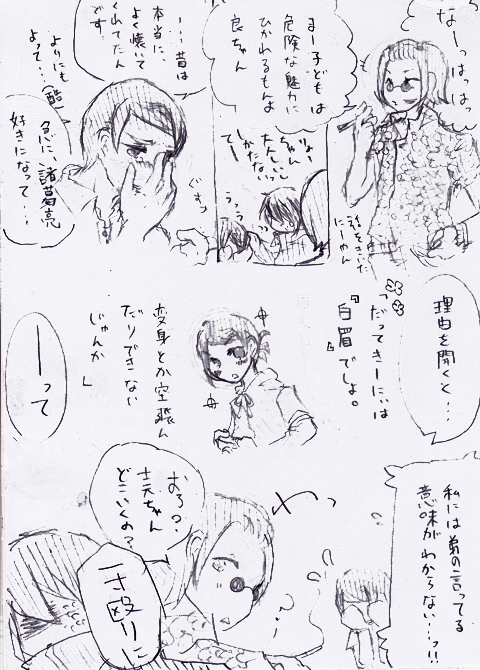 なーっはっはっはっ
まー子どもは
危険な魅力に
ひかれるもんよ
良ちゃん
話をきいた
にーやん
りょー
ちゃん
しかたない
てー
うぅぅ
……昔は
本当に、
よく懐いて
くれてたん
です
よりにも
よって…(酷)
急に、諸葛亮
好きになって…
ぐすっ
理由を聞くと…
「だってきーにぃは
『白眉』でしょ。
変身とか空飛ん
だりできない
じゃんか」
ーって
私には弟の言ってる
意味がわからない…っ!!
おろ?
ちゃん
どこいくの?
一寸殴りに